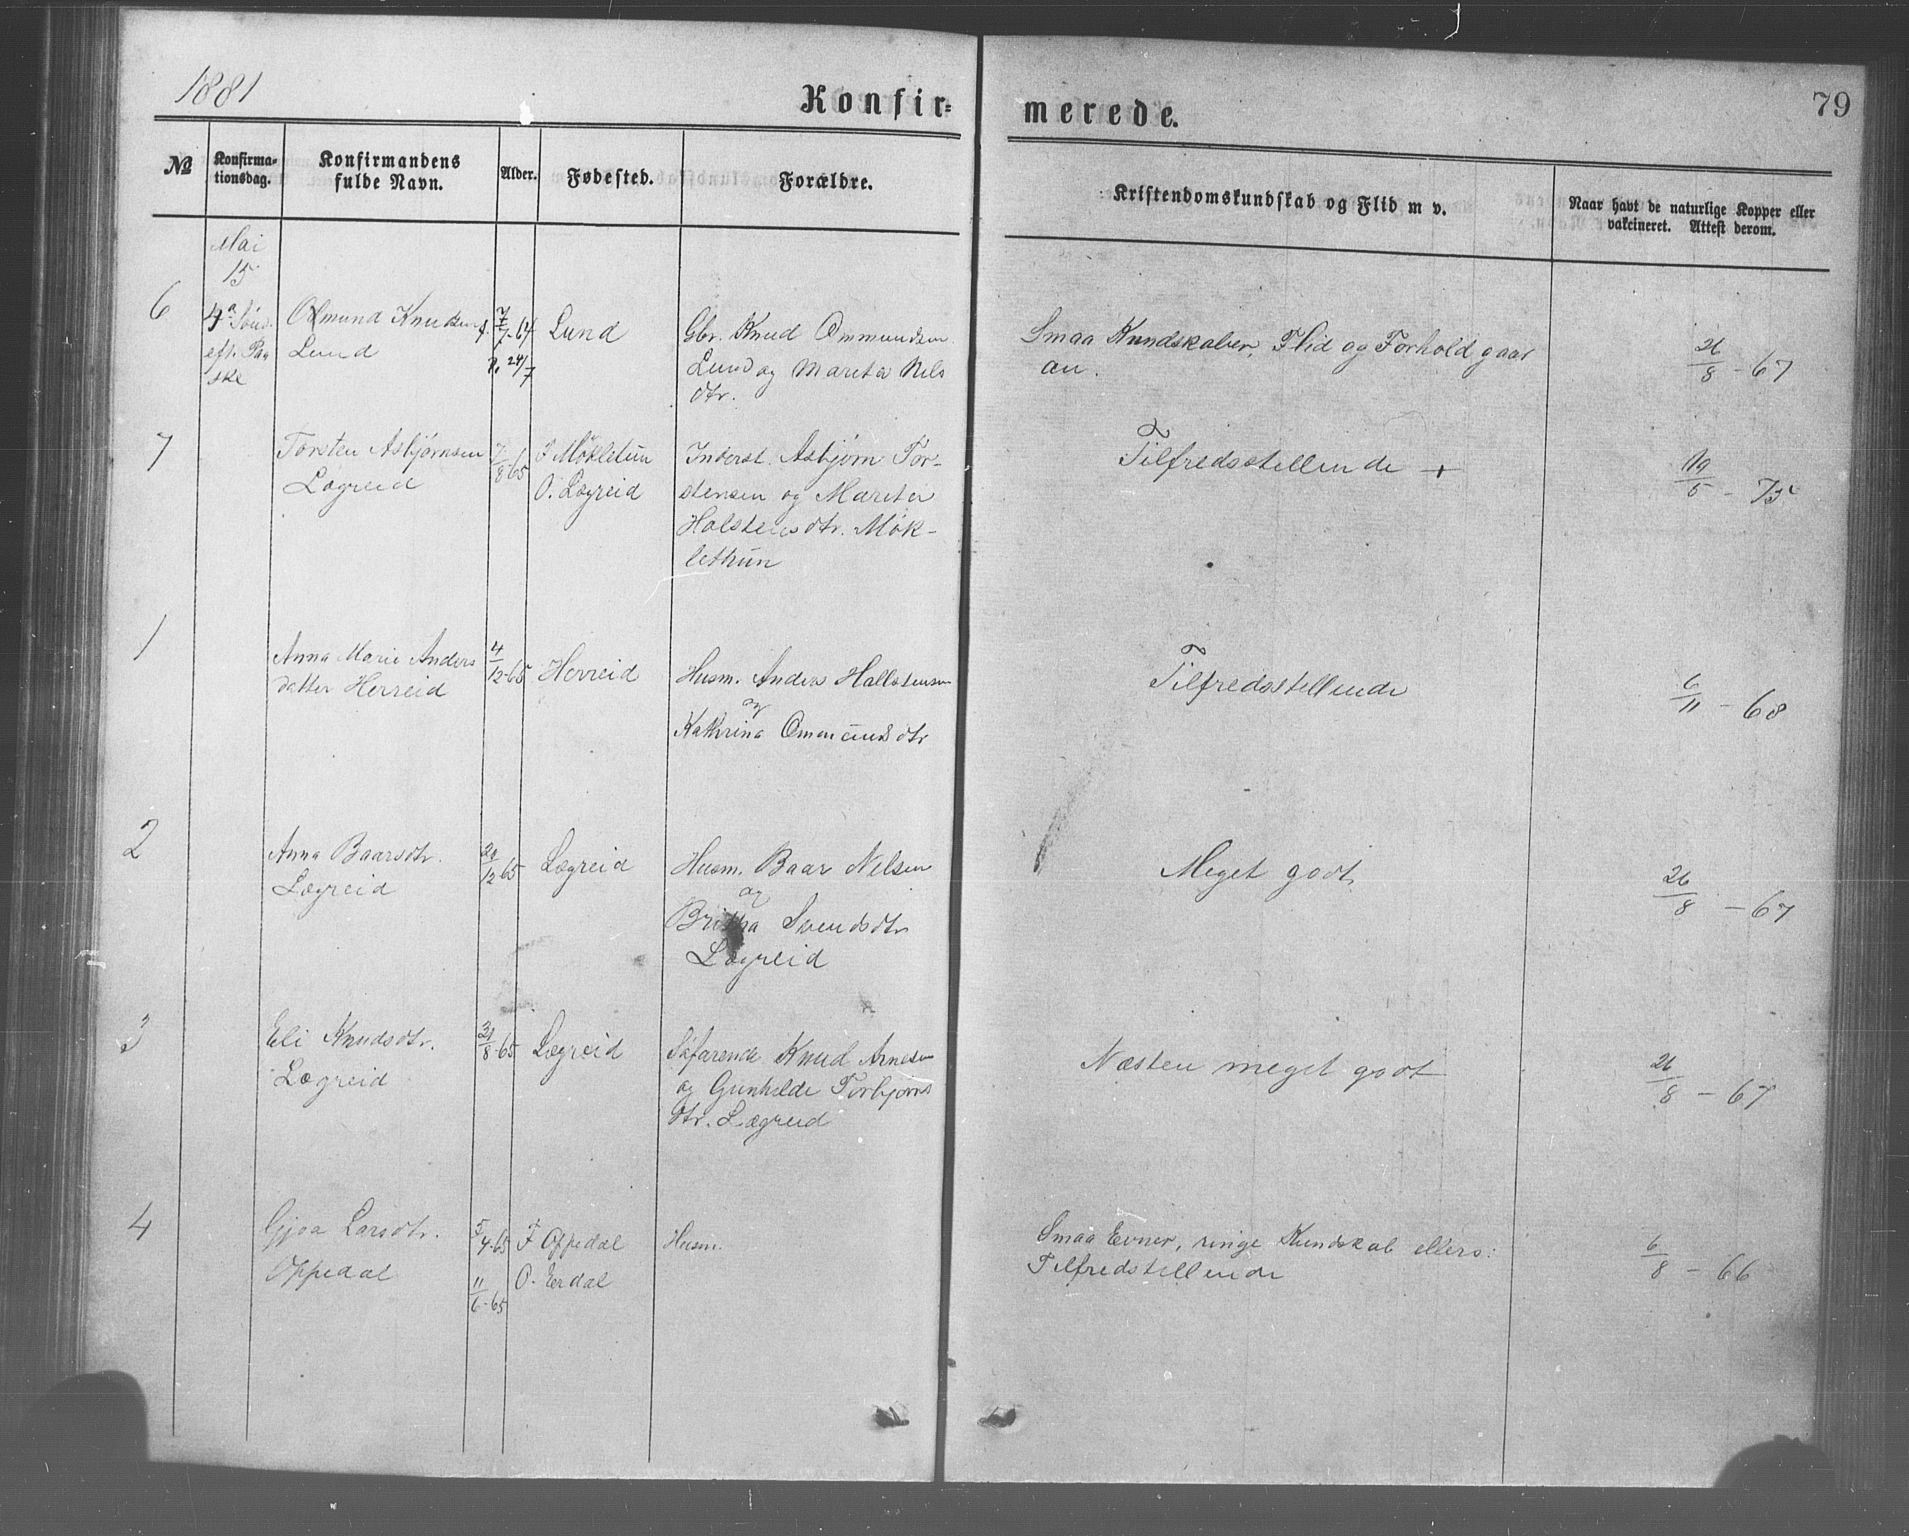 1881
Konfir=
merede.
79
No
Konfirma-
tionsdag.
Konfirmandens
fulde Navn.
Alder.
Fødested.
Forældre.
Kristendomskundskab og Flid m v.
Naar havt de naturlige Kopper eller
vakcineret. Attest derom.
Mai
15
6
4a Sønd.
eft. Paa
ske
Omund Knudsen
Lund
f. 7/7-64
24/7
Lund
Gbr. Knud Ommundsen
Lund og Marita Nels
dtr.
Smaa Kundskaber, Flid og Forhold gaar
an.
26/8 - 67
7
Torsten Asbjørnsen
Lægreid
7/8 65
F Mökletun
O. Lægreid
Inderst. Asbjørn Tor-
stensen og Marita
Holstensdtr. Møk-
lethun
Tilfredsstellende +
19/5 - 75
1
Anna Marie Anders
datter Herreid
4/12-65
Herreid
Husm. Anders Hallstensen
og
Kathrina Omundsdtr
Tilfredsstellende
6/11 - 68
2
Anna Baarsdtr.
Lægreid
29/12 65
Lægreid
Husm. Baar Nelsen
og
Britha Svendsdtr
Lægreid
Meget godt
26/8 - 67
3
Eli Knudsdtr.
Lægreid
31/8-65
Lægreid
Søfarende Knud Arnesen
og Gunhilde Torbjørns
dtr. Lægreid
Næsten meget godt
26/8 - 67
4
Gjøa Larsdtr.
Oppedal
5/4-65
11/6-65
F Oppedal
O. Erdal
Husm.
Smaa Evner, ringe Kundskab ellers:
Tilfredstillende
6/8 - 66